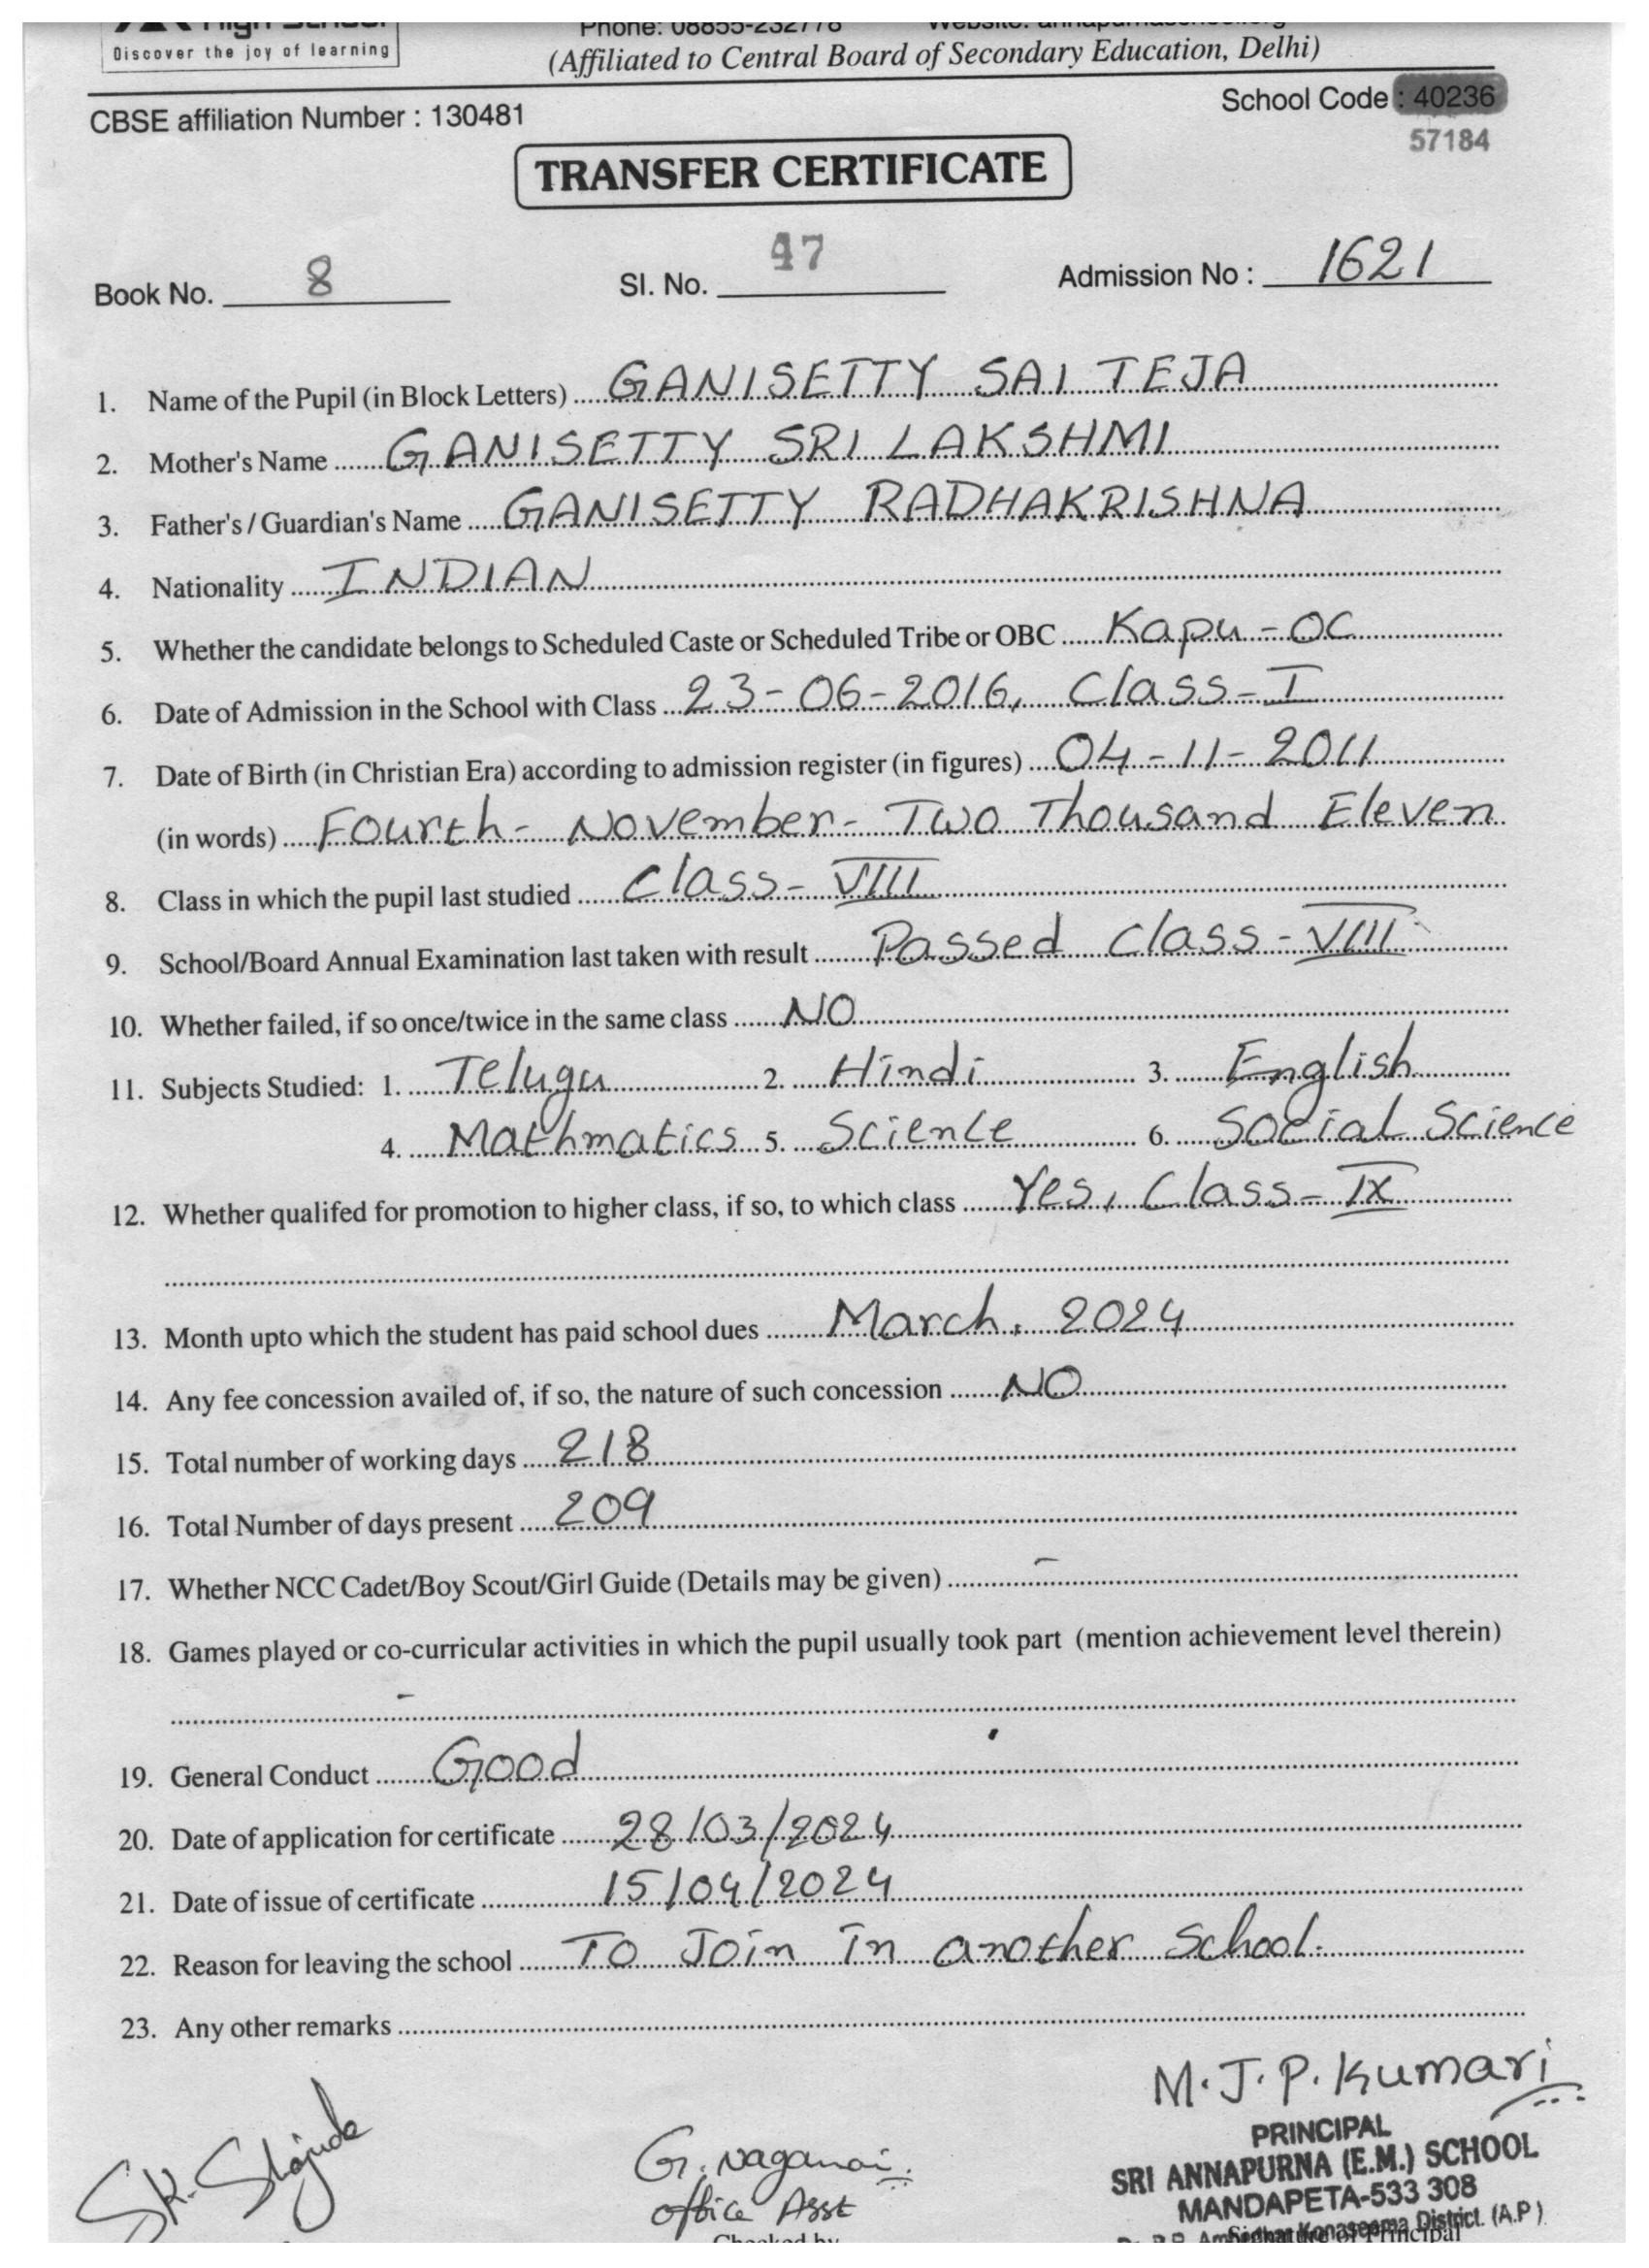 High School
Discover the joy of learning
Phone: 08855-232778 Website: annapurnaschool.org
(Affiliated to Central Board of Secondary Education, Delhi)
CBSE affiliation Number : 130481
School Code : 40236
57184
TRANSFER CERTIFICATE
Book No. 8 Sl. No. 47 Admission No : 1621
1. Name of the Pupil (in Block Letters) GANISETTY SAI TEJA
2. Mother's Name GANISETTY SRI LAKSHMI
3. Father's / Guardian's Name GANISETTY RADHAKRISHNA
4. Nationality INDIAN
5. Whether the candidate belongs to Scheduled Caste or Scheduled Tribe or OBC Kapu - OC
6. Date of Admission in the School with Class 23-06-2016, Class - I
7. Date of Birth (in Christian Era) according to admission register (in figures) 04-11-2011
(in words) Fourth - November - Two Thousand Eleven
8. Class in which the pupil last studied Class - VIII
9. School/Board Annual Examination last taken with result Passed Class - VIII
10. Whether failed, if so once/twice in the same class NO
11. Subjects Studied: 1. Telugu 2. Hindi 3. English
4. Mathmatics 5. Science 6. Social Science
12. Whether qualifed for promotion to higher class, if so, to which class Yes, Class - IX
13. Month upto which the student has paid school dues March, 2024
14. Any fee concession availed of, if so, the nature of such concession NO
15. Total number of working days 218
16. Total Number of days present 209
17. Whether NCC Cadet/Boy Scout/Girl Guide (Details may be given) -
18. Games played or co-curricular activities in which the pupil usually took part (mention achievement level therein)
-
19. General Conduct Good
20. Date of application for certificate 28/03/2024
21. Date of issue of certificate 15/04/2024
22. Reason for leaving the school To Join in another School.
23. Any other remarks
M.J.P. Kumari
PRINCIPAL
SRI ANNAPURNA (E.M.) SCHOOL
MANDAPETA-533 308
Konaseema District. (A.P)
Signature of Principal
SK.
G.
Office Asst
Checked by